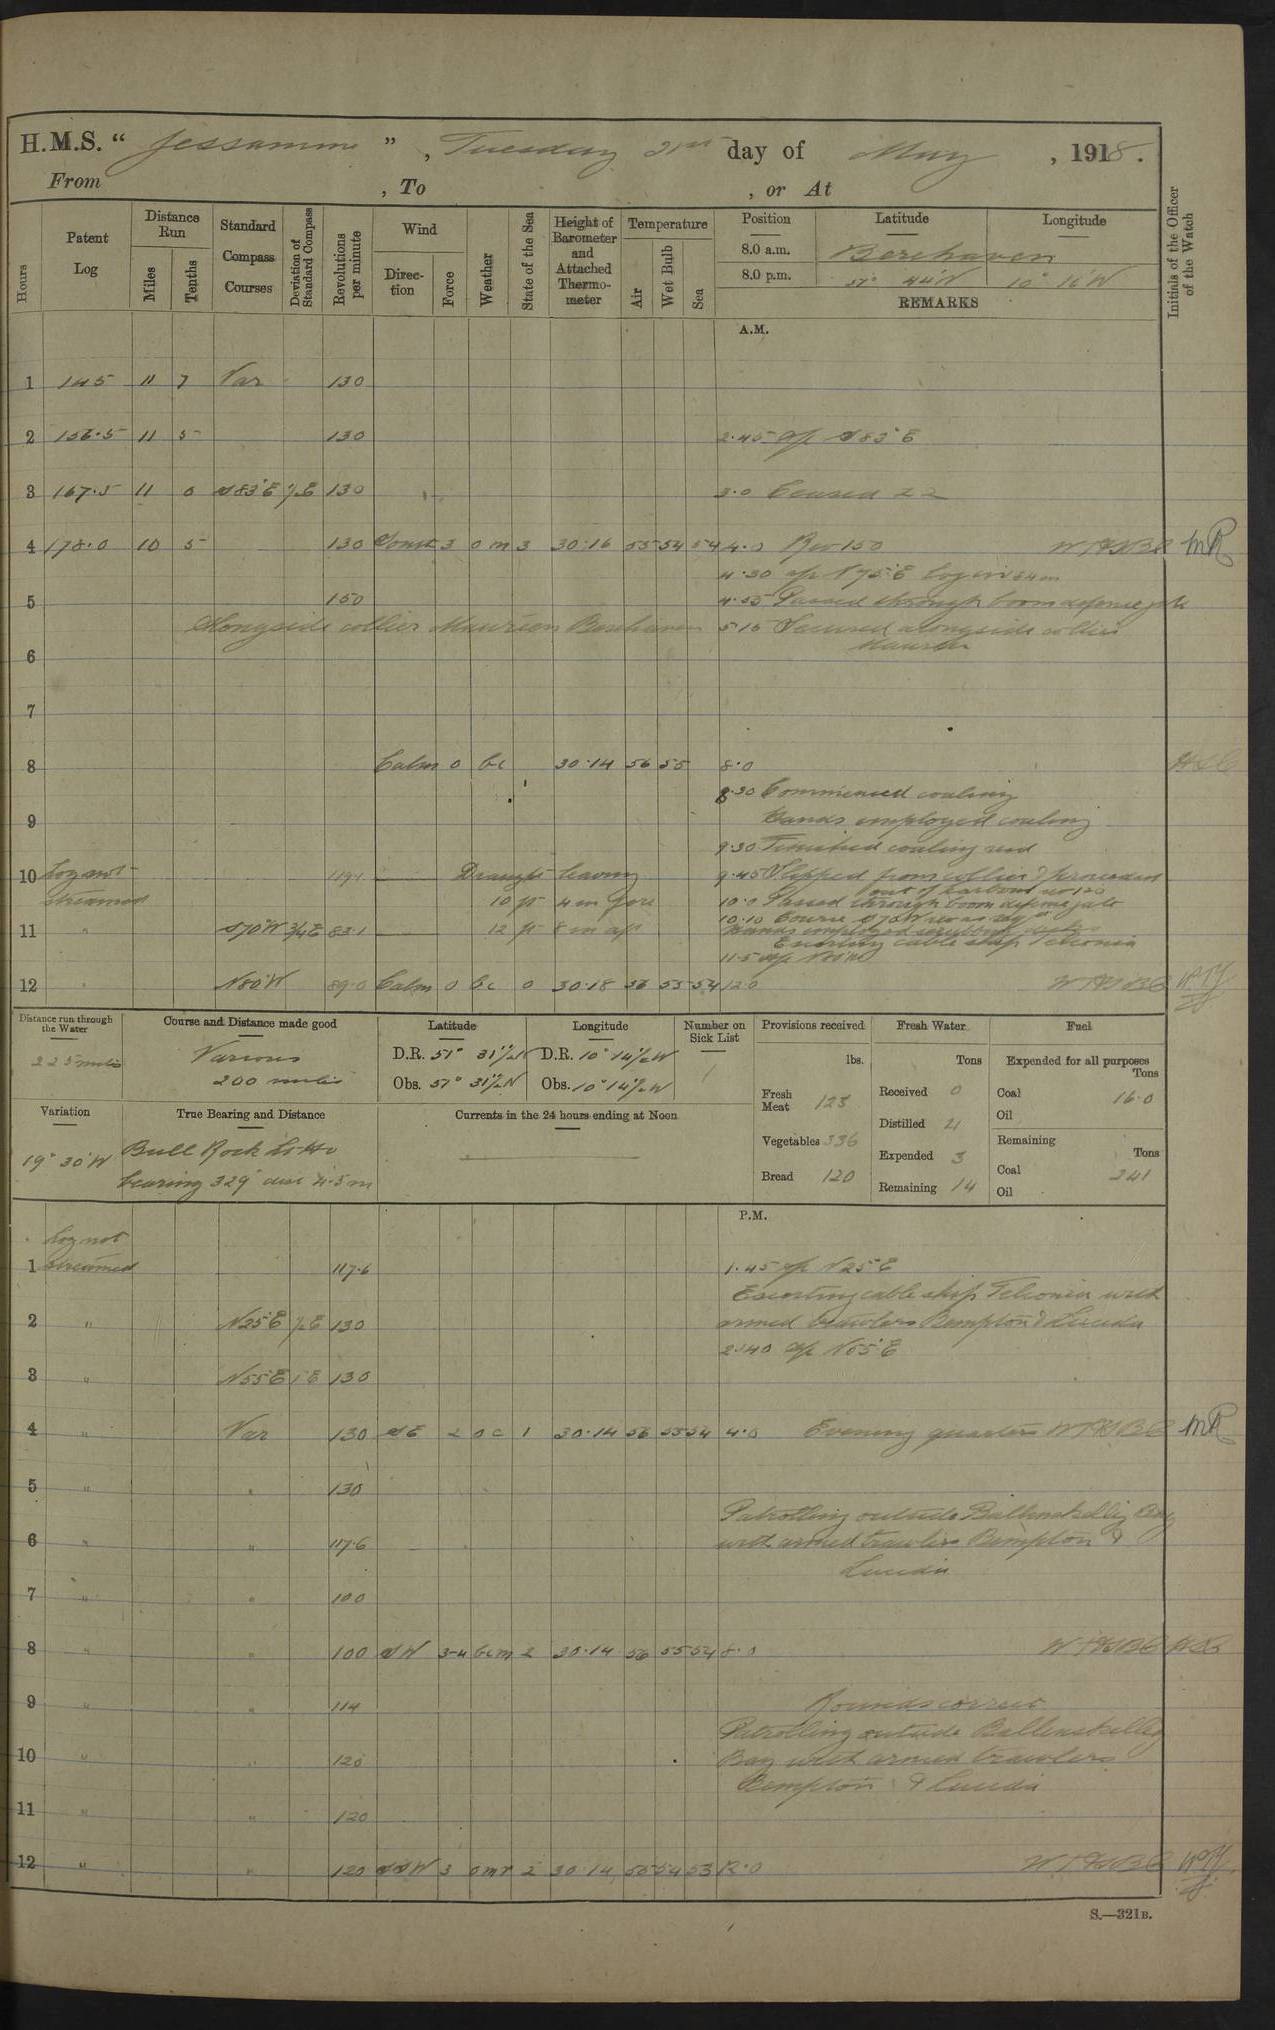 H.M.S. " Jessamine ", Tuesday 21st day of May, 1918.
From , To , or At
Hours
Patent Log
Distance Run
Miles
Tenths
Standard Compass Courses
Deviation of Standard Compass
Revolutions per minute
Wind
Direction
Force
Weather
State of the Sea
Height of Barometer and Attached Thermometer
Temperature
Air
Wet Bulb
Sea
Position Latitude Longitude
8.0 a.m. Berehaven
8.0 p.m. 51° 44'N 10° 16'W
REMARKS
Initials of the Officer of the Watch
A.M.
1 145 11 7 Var 130
2 156.5 11 5 130 2.45 a/c S83°E
3 167.5 11 0 S83°E ½E 130 3.0 Ceased ZZ
4 178.0 10 5 130 South 3 o m 3 30.16 55 54 54 4.0 Rev 150 MR
4.30 a/c N75°E Log in
5 150 4.55 Passed through boom defense gate
Alongside collier Berehaven 5.15 Secured alongside collier
6
7
8 Calm 0 bc 30.14 56 55 8.0
8.30 Commenced coaling
9 Hands employed coaling
9.30 Finished coaling
10 Log not 119.1 Draught leaving 9.45 Slipped from collier & proceeded
out of harbour
streamed 10 ft 4 in fore 10.0 Passed through boom defense gate
10.10 Course S70°W
11 " S70°W ¾E 83.1 12 ft 8 in aft Hands employed
Escorting cable ship Telconia
11.5 a/c N80°W
12 " N80°W 89.0 Calm 0 bc 0 30.18 56 55 54 12.0
Distance run through the Water
225 miles
Course and Distance made good
Various
200 miles
Latitude
D.R. 51° 31½'N
Obs. 51° 31½'N
Longitude
D.R. 10° 14½'W
Obs. 10° 14½'W
Number on Sick List
1
Provisions received
lbs.
Fresh Meat 123
Vegetables 336
Bread 120
Fresh Water
Tons
Received 0
Distilled
Expended 3
Remaining 14
Fuel
Expended for all purposes
Tons
Coal 16.0
Oil
Remaining
Tons
Coal 241
Oil
Variation
19° 30'W
True Bearing and Distance
Bull Rock Lt Ho
bearing 329° dist 4.5 m
Currents in the 24 hours ending at Noon
P.M.
Log not
1 streamed 117.6 1.45 a/c N25°E
Escorting cable ship Telconia with
2 " N25°E ½E 130 armed trawlers Bempton & Lucida
2.40 a/c N55°E
3 " N55°E 1°E 130
4 " Var 130 SE 2 oc 1 30.14 56 55 54 4.0 Evening quarters MR
5 " " 130
Patrolling outside Ballinskellig Bay
6 " " 117.6 with armed trawlers Bempton &
Lucida
7 " " 100
8 " " 100 SW 3-4 bcm 2 30.14 56 55 54 8.0
9 " " 114 Rounds correct
Patrolling outside Ballinskellig
10 " " 120 Bay with armed trawlers
Bempton & Lucida
11 " " 120
12 " " 120 SSW 3 omr 2 30.14 55 54 53 12.0
S.—321B.